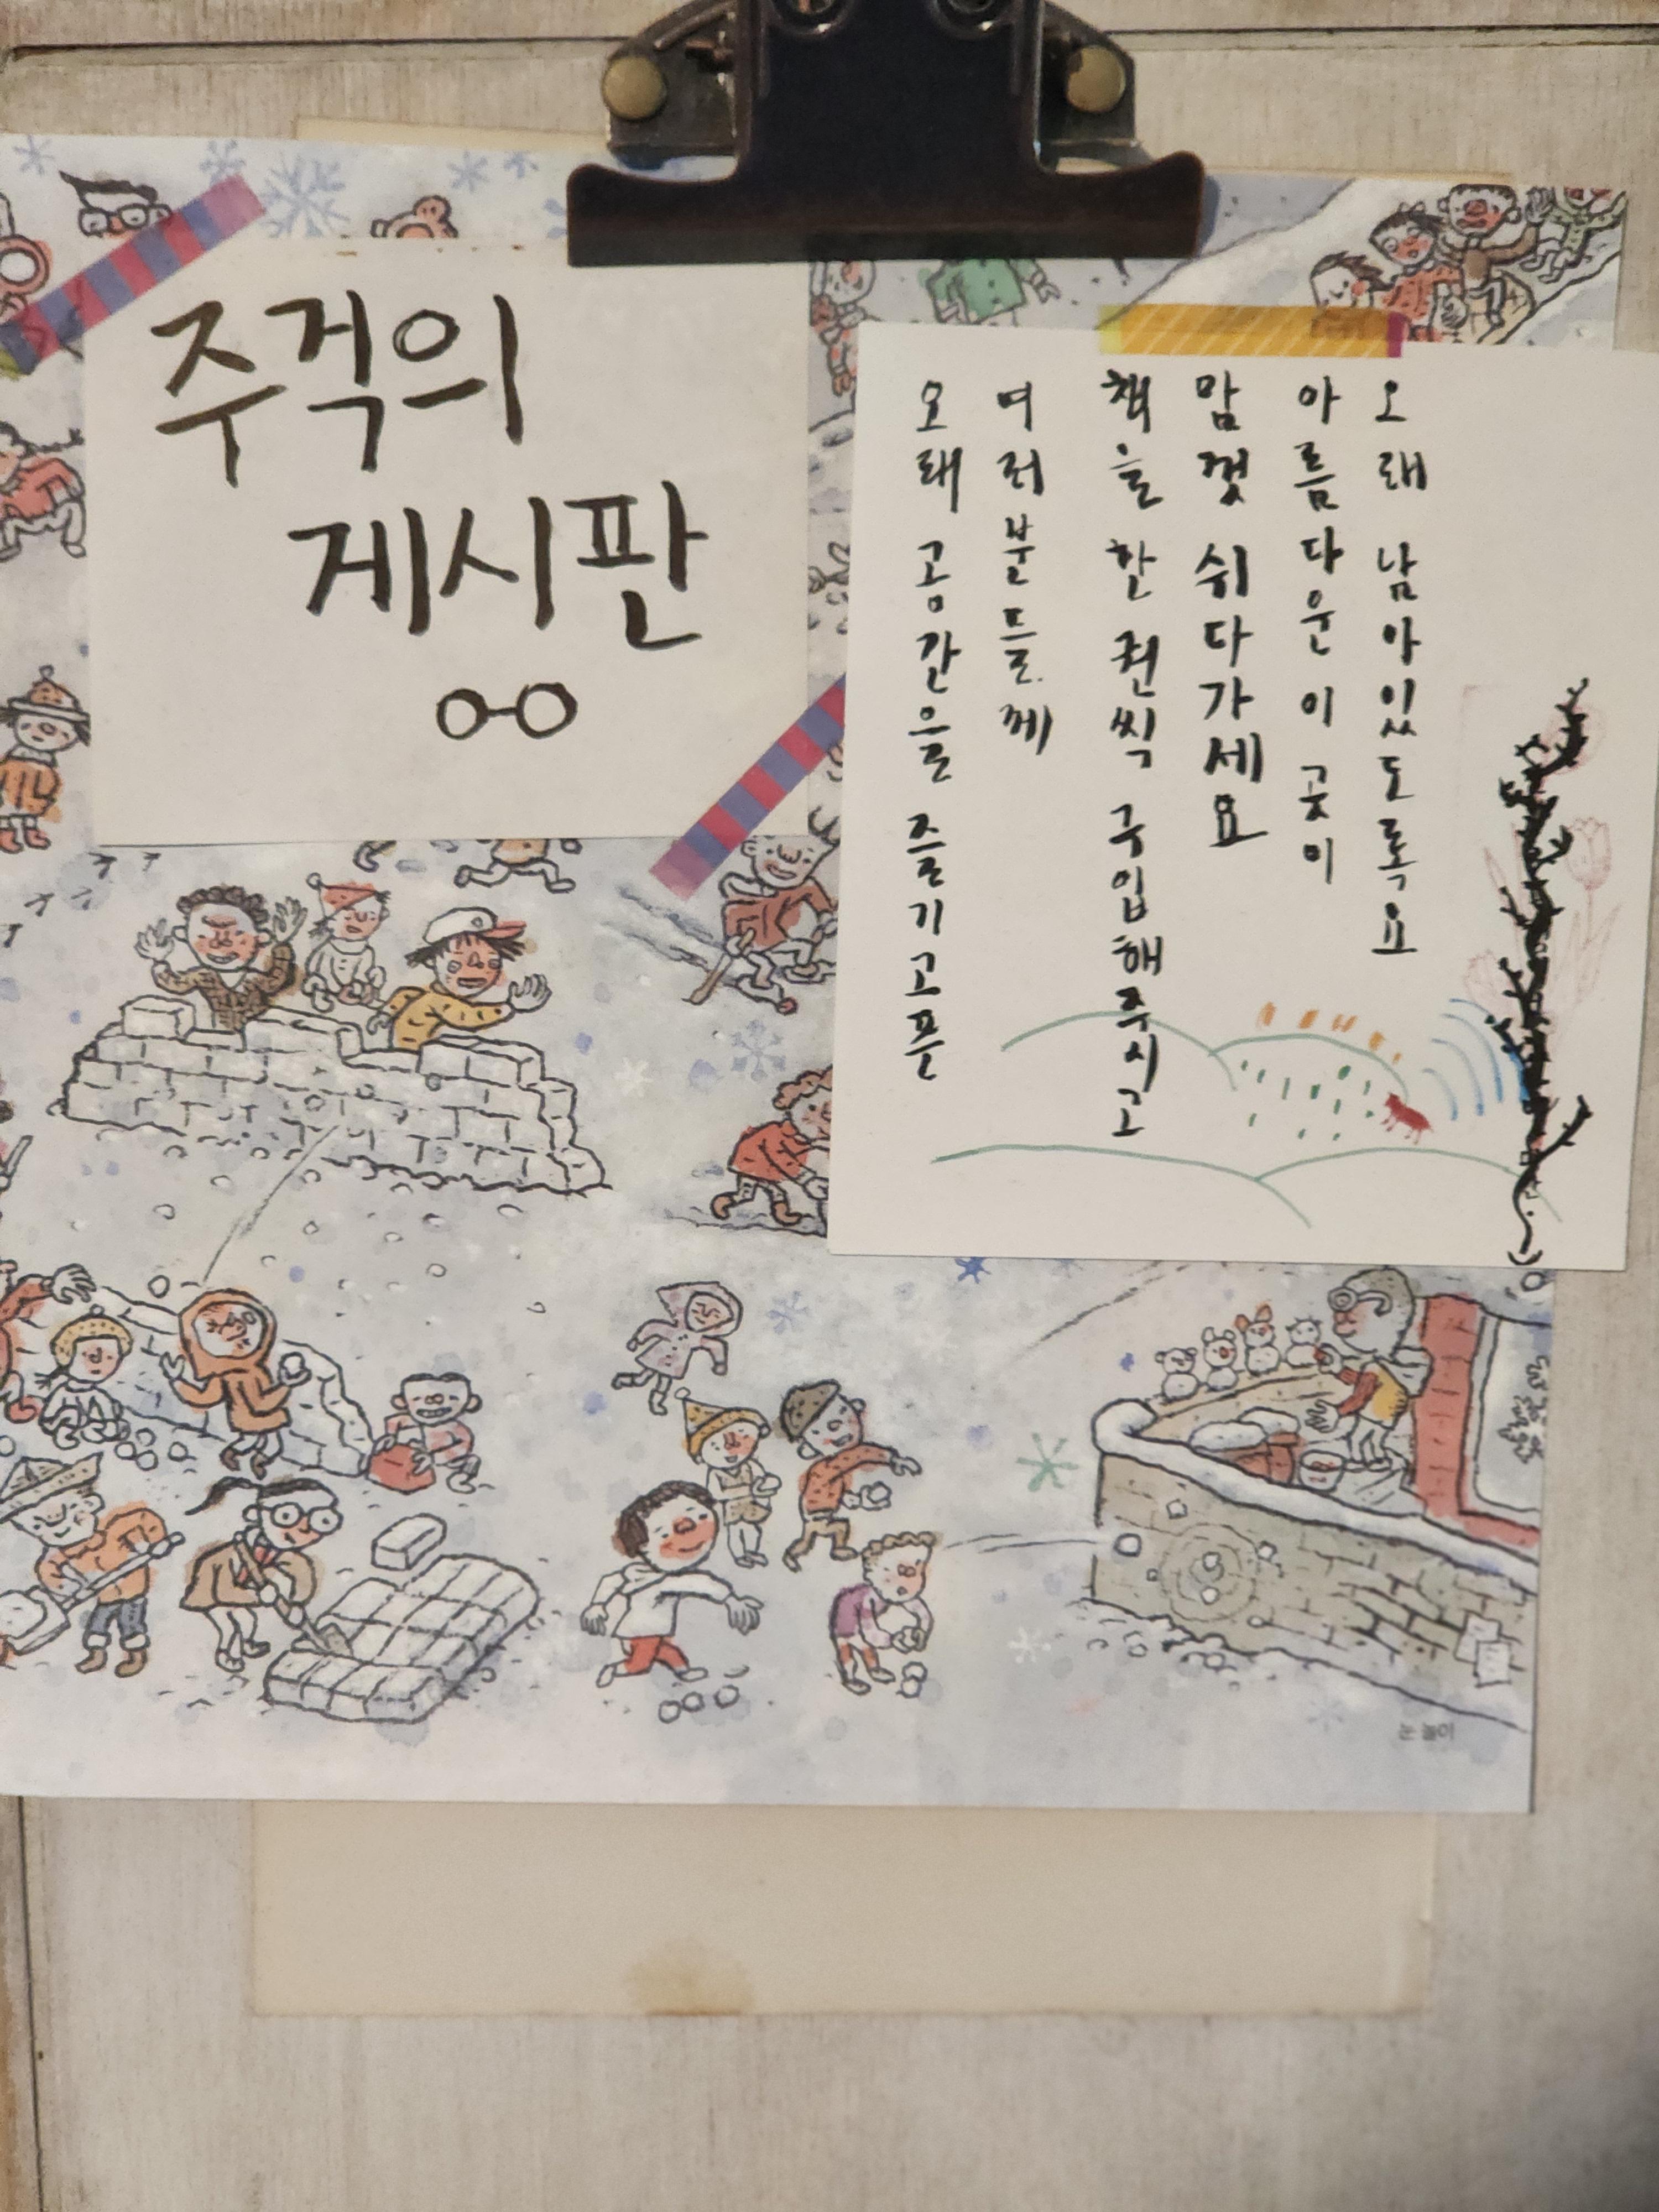 주걱의
게시판
오래 공간을 즐기고픈
여러분들께
책을 한 권씩 구입해주시고
맘껏 쉬다가세요
아름다운 이 곳이
오래 남아있도록요
눈 놀이